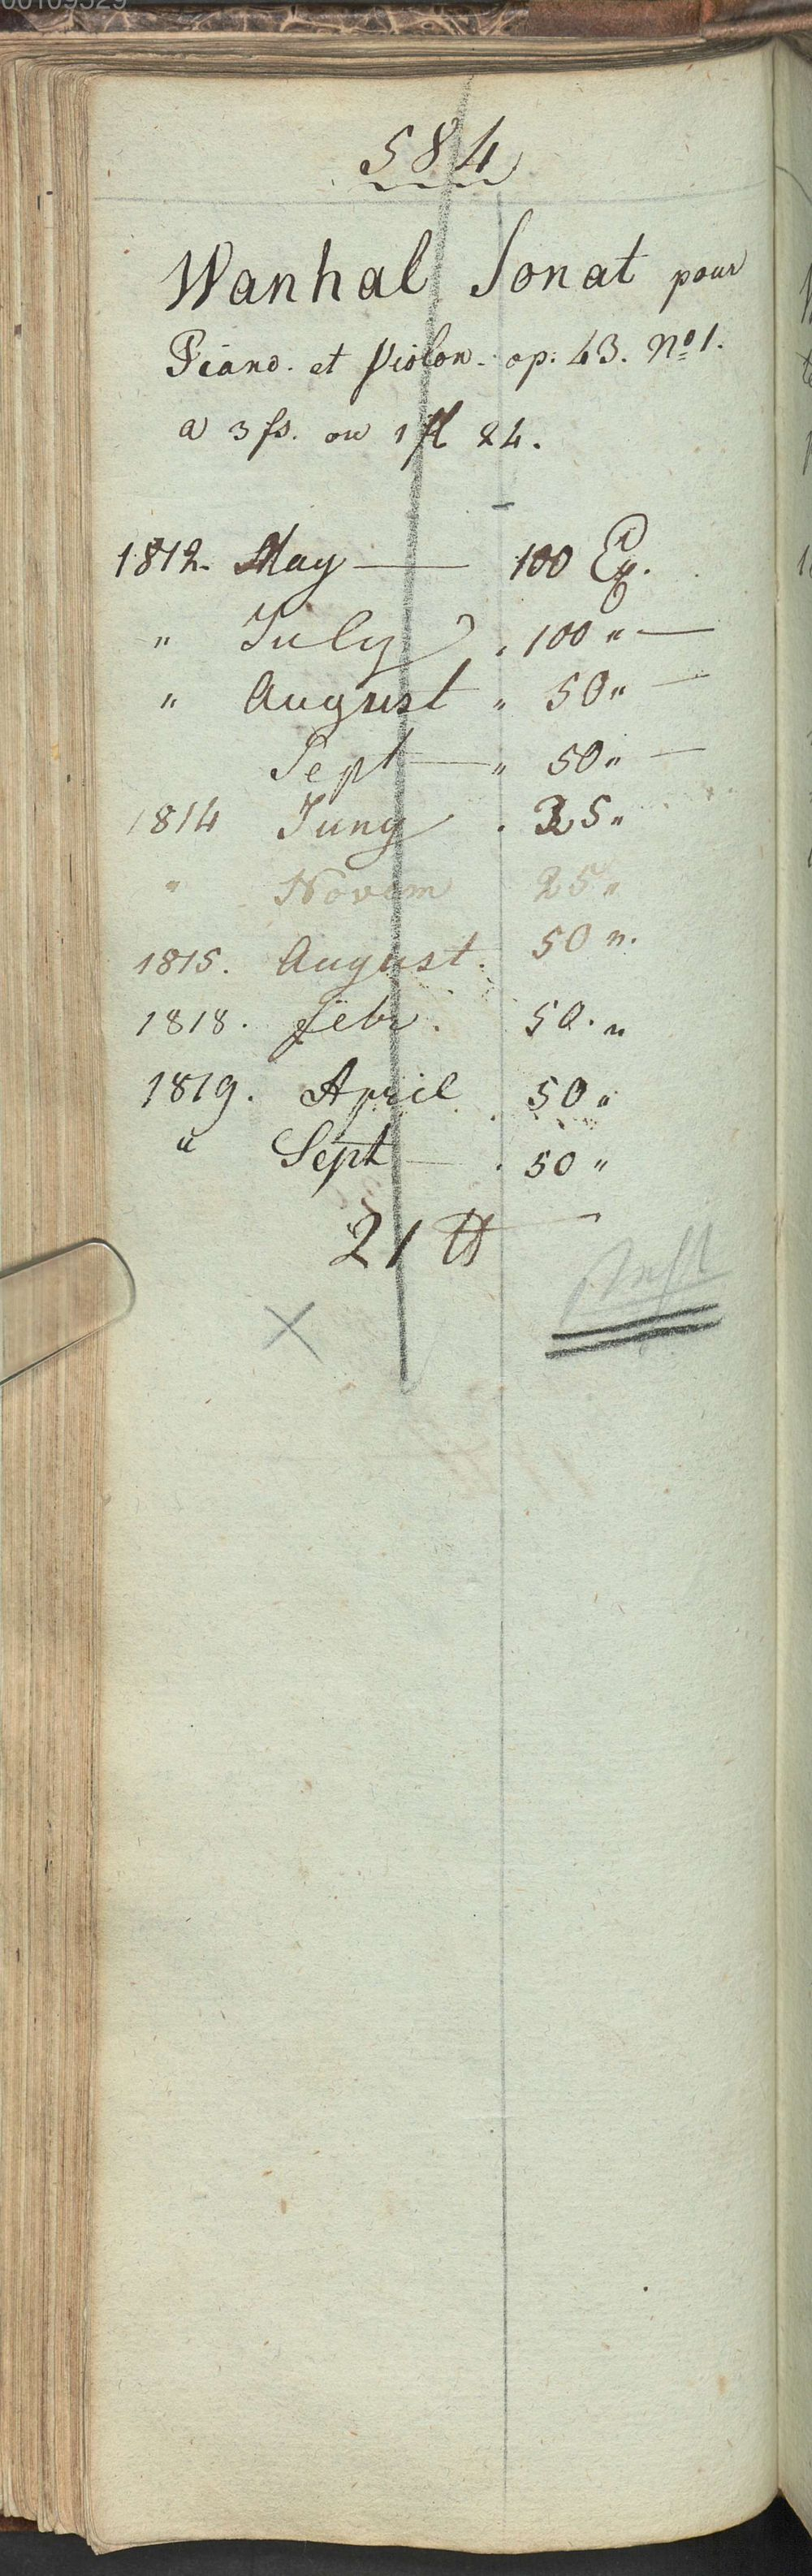 584
Wanhal Sonat pour
Piano. et Violon. op: 43. No 1.
a 3 fs. ou 1 fl 24.
1812. May — 100 Ex.
" July . 100 " —
" August " 50 " —
Sept — " 50 " —
1814 Juny . 25 "
" Novem 25 "
1815. August. 50 ".
1818. Febr. 50. "
1819. April . 50 "
" Sept — . 50 "
21 ℔